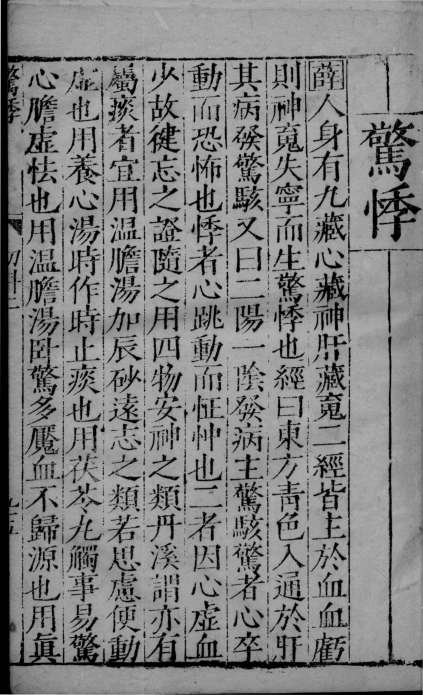 驚悸
薛人身有九藏心藏神肝藏䰟二經皆主於血血虧
則神䰟失寧而生驚悸也經曰東方青色入通於肝
其病發驚駭又曰二陽一陰發病主驚駭驚者心卒
動而恐怖也悸者心跳動而怔忡也二者因心虛血
少故健忘之證隨之用四物安神之類丹溪謂亦有
屬痰者宜用温膽湯加辰砂遠志之類若思慮便動
虛也用養心湯時作時止痰也用茯苓丸觸事易驚
心膽虛怯也用温膽湯卧驚多魘血不歸源也用眞
驚悸
九五